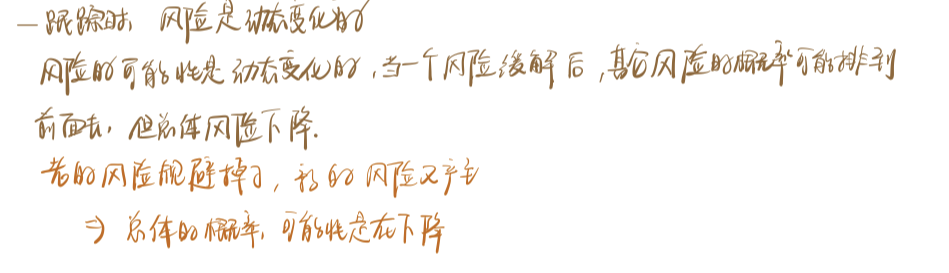 一跟踪时，风险是动态变化的
风险的可能性是动态变化的，当一个风险缓解后，其它风险的概率可能排到
前面去，但总体风险下降.
老的风险规避掉了，新的风险又产生
⇒ 总体的概率，可能性是在下降